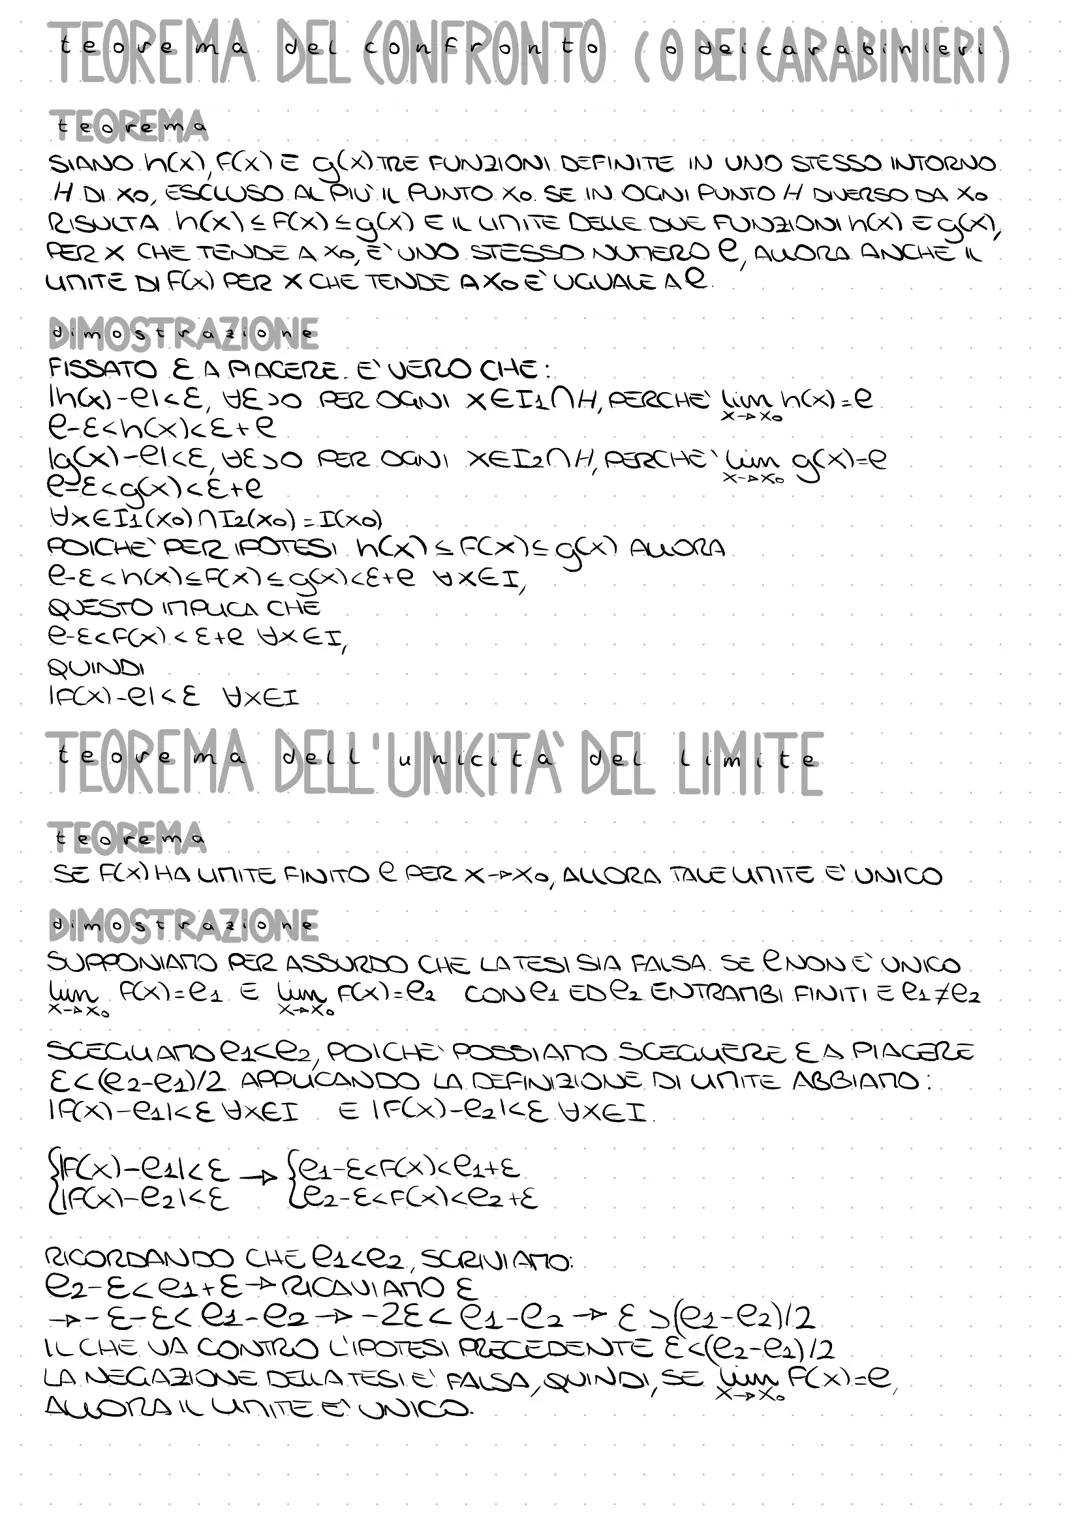 TEOREMA DEL CONFRONTO (O DEI CARABINIERI)
TEOREMA
SIANO h(x), F(x) E g(x) TRE FUNZIONI DEFINITE IN UNO STESSO INTORNO
H DI X₀, ESCLUSO AL PIU' IL PUNTO X₀. SE IN OGNI PUNTO H DIVERSO DA X₀
RISULTA h(x) ≤ F(x) ≤ g(x) E IL LIMITE DELLE DUE FUNZIONI h(x) E g(x),
PER X CHE TENDE A X₀, E' UNO STESSO NUMERO ℓ, ALLORA ANCHE IL
LIMITE DI F(x) PER X CHE TENDE A X₀ E' UGUALE A ℓ.
DIMOSTRAZIONE
FISSATO ε A PIACERE. E' VERO CHE:
|h(x)-ℓ|<ε, ∀ε>0 PER OGNI X∈I₁∩H, PERCHE' lim x→x₀ h(x)=ℓ
ℓ-ε<h(x)<ε+ℓ
|g(x)-ℓ|<ε, ∀ε>0 PER OGNI X∈I₂∩H, PERCHE' lim x→x₀ g(x)=ℓ
ℓ-ε<g(x)<ε+ℓ
∀x∈I₁(x₀)∩I₂(x₀)=I(x₀)
POICHE' PER IPOTESI h(x)≤F(x)≤g(x) ALLORA
ℓ-ε<h(x)≤F(x)≤g(x)<ε+ℓ ∀x∈I,
QUESTO IMPLICA CHE
ℓ-ε<F(x)<ε+ℓ ∀x∈I,
QUINDI
|F(x)-ℓ|<ε ∀x∈I
TEOREMA DELL'UNICITA' DEL LIMITE
TEOREMA
SE F(x) HA LIMITE FINITO ℓ PER X→X₀, ALLORA TALE LIMITE E' UNICO
DIMOSTRAZIONE
SUPPONIAMO PER ASSURDO CHE LA TESI SIA FALSA. SE ℓ NON E' UNICO
lim x→x₀ F(x)=ℓ₁ E lim x→x₀ F(x)=ℓ₂ CON ℓ₁ ED ℓ₂ ENTRAMBI FINITI E ℓ₁≠ℓ₂
SCEGLIAMO ℓ₁<ℓ₂, POICHE' POSSIAMO SCEGLIERE ε A PIACERE
ε<(ℓ₂-ℓ₁)/2 APPLICANDO LA DEFINIZIONE DI LIMITE ABBIAMO:
|F(x)-ℓ₁|<ε ∀x∈I E |F(x)-ℓ₂|<ε ∀x∈I.
{|F(x)-ℓ₁|<ε → {ℓ₁-ε<F(x)<ℓ₁+ε
{|F(x)-ℓ₂|<ε {ℓ₂-ε<F(x)<ℓ₂+ε
RICORDANDO CHE ℓ₁<ℓ₂, SCRIVIAMO:
ℓ₂-ε<ℓ₁+ε→RICAVIAMO ε
→-ε-ε<ℓ₁-ℓ₂→-2ε<ℓ₁-ℓ₂→ε>(ℓ₁-ℓ₂)/2
IL CHE VA CONTRO L'IPOTESI PRECEDENTE ε<(ℓ₂-ℓ₁)/2
LA NEGAZIONE DELLA TESI E' FALSA, QUINDI, SE lim x→x₀ F(x)=ℓ,
ALLORA IL LIMITE E' UNICO.